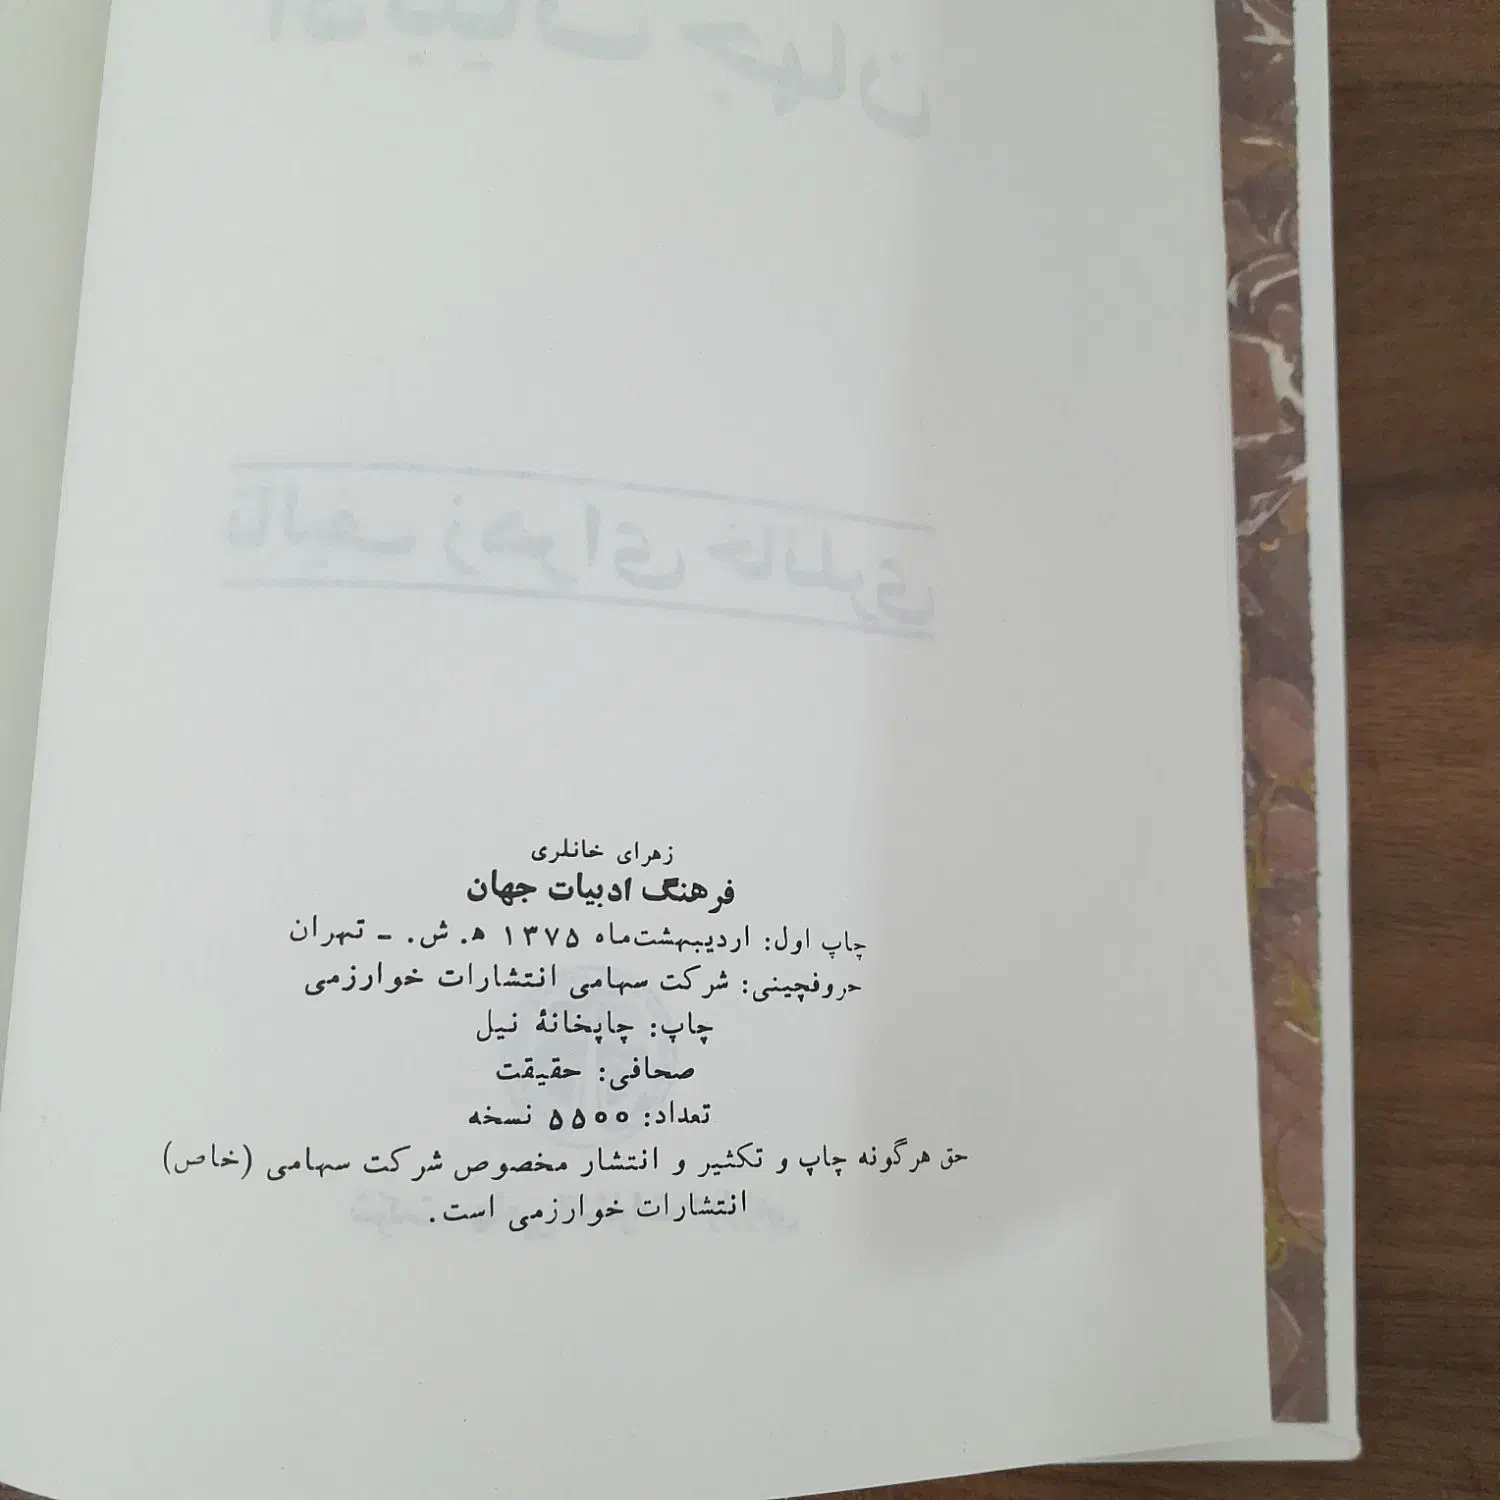 زهرای خانلری
فرهنگ ادبیات جهان
چاپ اول: اردیبهشت‌ماه ۱۳۷۵ ه‍. ش. ـ تهران
حروفچینی: شرکت سهامی انتشارات خوارزمی
چاپ: چاپخانهٔ نیل
صحافی: حقیقت
تعداد: ۵۵۰۰ نسخه
حق هرگونه چاپ و تکثیر و انتشار مخصوص شرکت سهامی (خاص)
انتشارات خوارزمی است.